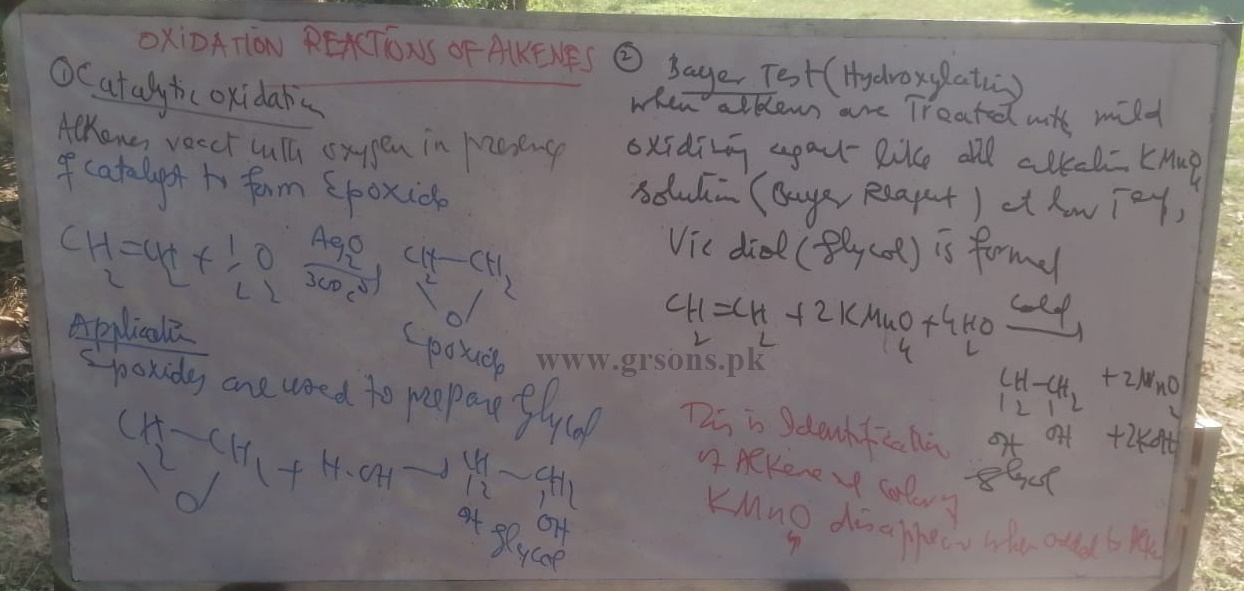 OXIDATION REACTIONS OF ALKENES
① Catalytic oxidation
Alkenes react with oxygen in presence
of catalyst to form Epoxide
CH2=CH2 + 1/2 O2 Ag2O 300°C CH2-CH2
O
Epoxide
Application
Epoxides are used to prepare Glycol
CH2-CH2 + H-OH → CH2-CH2
O OH OH
glycol
② Bayer Test (Hydroxylation)
when alkens are Treated with mild
oxidizing agent like dil alkalin KMnO4
solution (Bayer Reagent) at low Temp,
Vic diol (glycol) is formed
CH2=CH2 + 2KMnO4 + 4H2O Cold →
CH2-CH2 + 2MnO2
OH OH + 2KOH
glycol
This is Identification
of Alkene colour
KMnO4 disappear when added to
www.grsons.pk